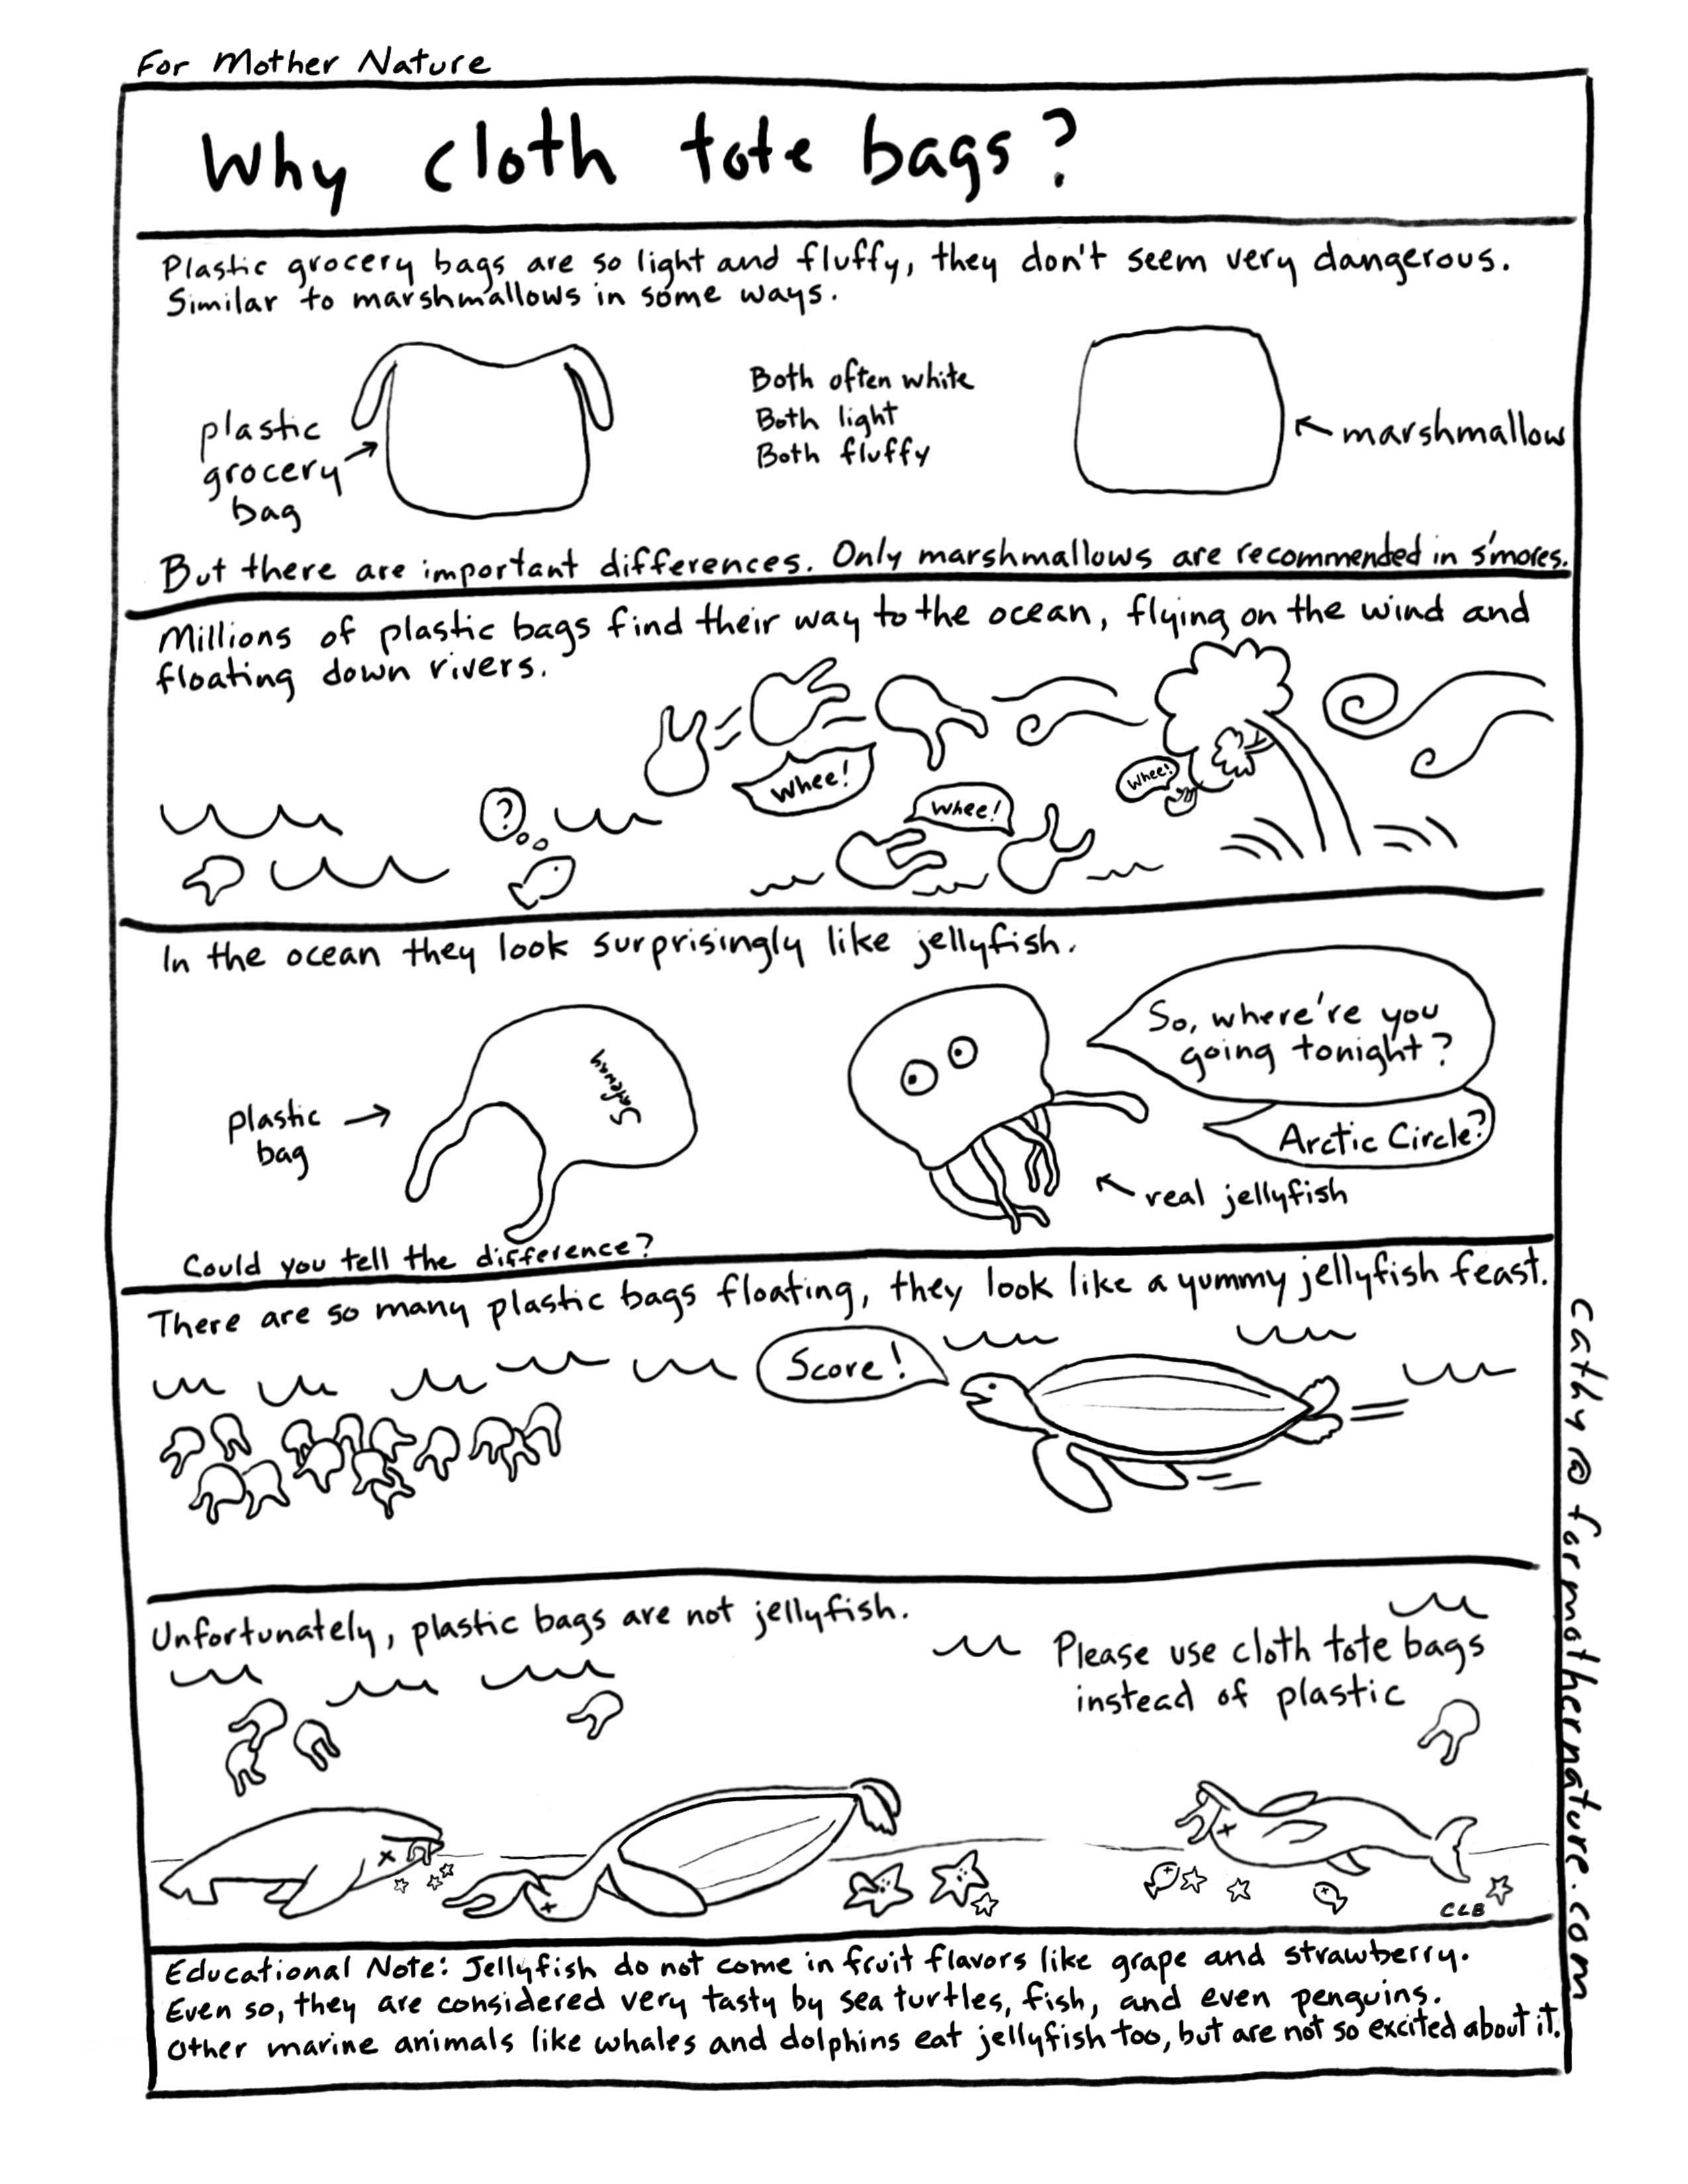 For Mother Nature
Why cloth tote bags?
Plastic grocery bags are so light and fluffy, they don't seem very dangerous.
Similar to marshmallows in some ways.
plastic
grocery
bag
Both often white
Both light
Both fluffy
marshmallow
But there are important differences. Only marshmallows are recommended in s'mores.
Millions of plastic bags find their way to the ocean, flying on the wind and
floating down rivers.
Whee!
Whee!
Whee!
?
In the ocean they look surprisingly like jellyfish.
So, where're you
going tonight?
Arctic Circle?
plastic
bag
Safeway
real jellyfish
Could you tell the difference?
There are so many plastic bags floating, they look like a yummy jellyfish feast.
Score!
Unfortunately, plastic bags are not jellyfish.
Please use cloth tote bags
instead of plastic
CLB
Educational Note: Jellyfish do not come in fruit flavors like grape and strawberry.
Even so, they are considered very tasty by sea turtles, fish, and even penguins.
Other marine animals like whales and dolphins eat jellyfish too, but are not so excited about it.
cathy@formothernature.com